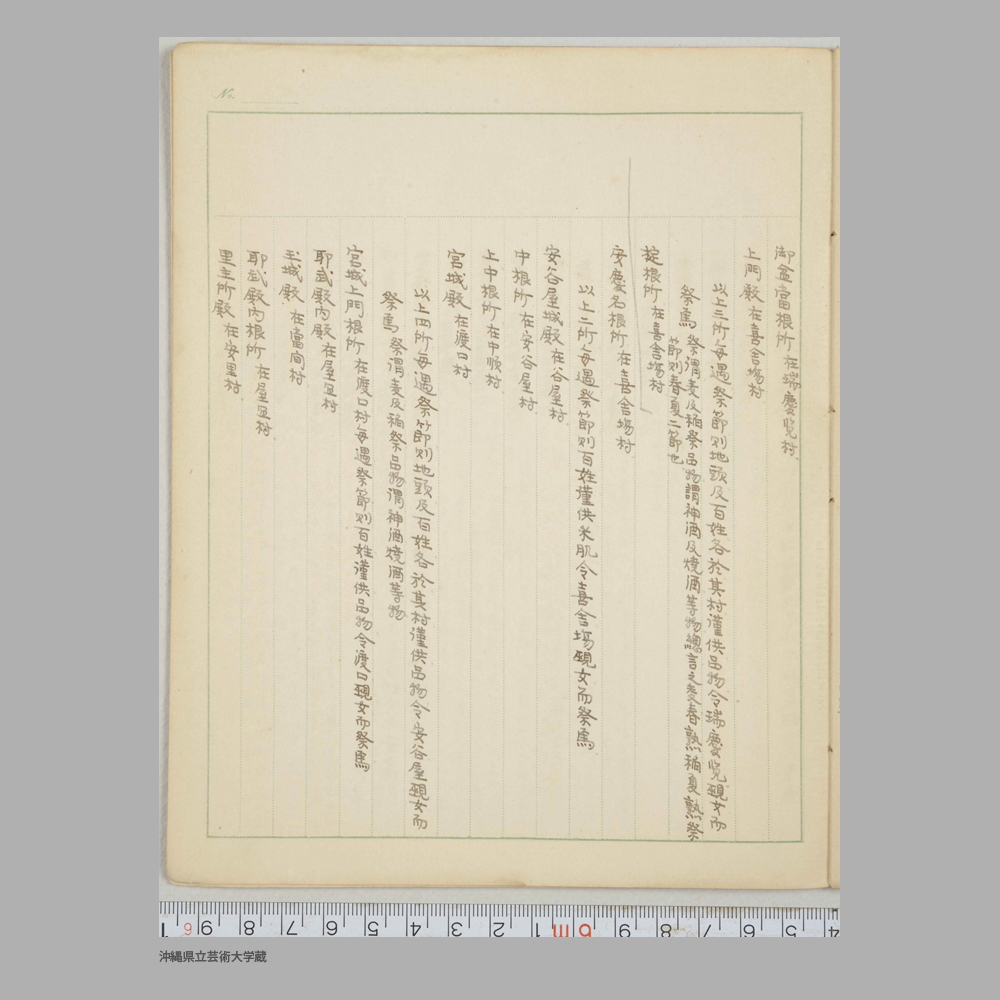 No.
御盆當根所 在瑞慶覧村
上門殿 在喜舎場村
以上三所毎遇祭節則地頭及百姓各於其村謹供品物令瑞慶覧覡女而
祭焉 祭謂麦及稲祭品物謂神酒及焼酒等物總言之麦春熟稲夏熟祭
節則春夏二節也
掟根所 在喜舎場村
安慶名根所 在喜舎場村
以上二所毎遇祭節則百姓謹供米肌令喜舎場覡女而祭焉
安谷屋城殿 在谷屋村
中根所 在安谷屋村
上中根所 在中順村
宮城殿 在渡口村
以上四所毎遇祭節則地頭及百姓各於其村謹供品物令安谷屋覡女而
祭焉 祭謂麦及稲祭品物謂神酒焼酒等物
宮城上門根所 在渡口村毎遇祭節則百姓謹供品物令渡口覡女而祭焉
耶武殿内殿 在屋宜村
玉城殿 在當間村
耶武殿内根所 在屋宜村
里主所殿 在安里村
沖縄県立芸術大学蔵